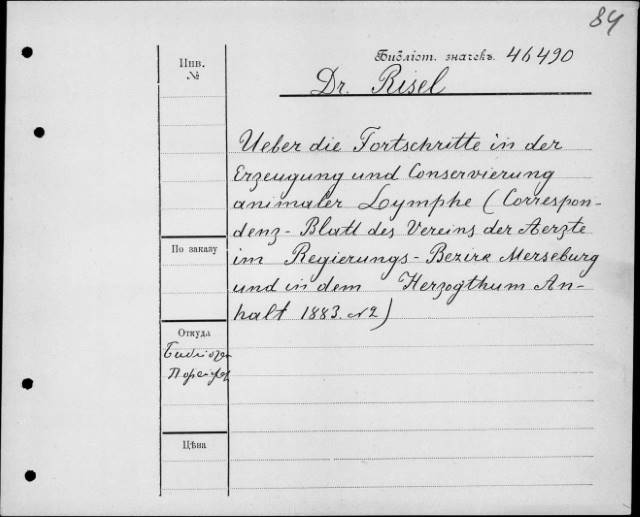 84
Инв. №
Библіот. значекъ. 46490
Dr. Risel
Ueber die Fortschritte in der
Erzeugung und Conservierung
animaler Lymphe (Correspon-
denz-Blatt des Vereins der Aerzte
im Regierungs-Bezirk Merseburg
und in dem Herzogthum An-
halt 1883. №2)
По заказу
Откуда
Цѣна